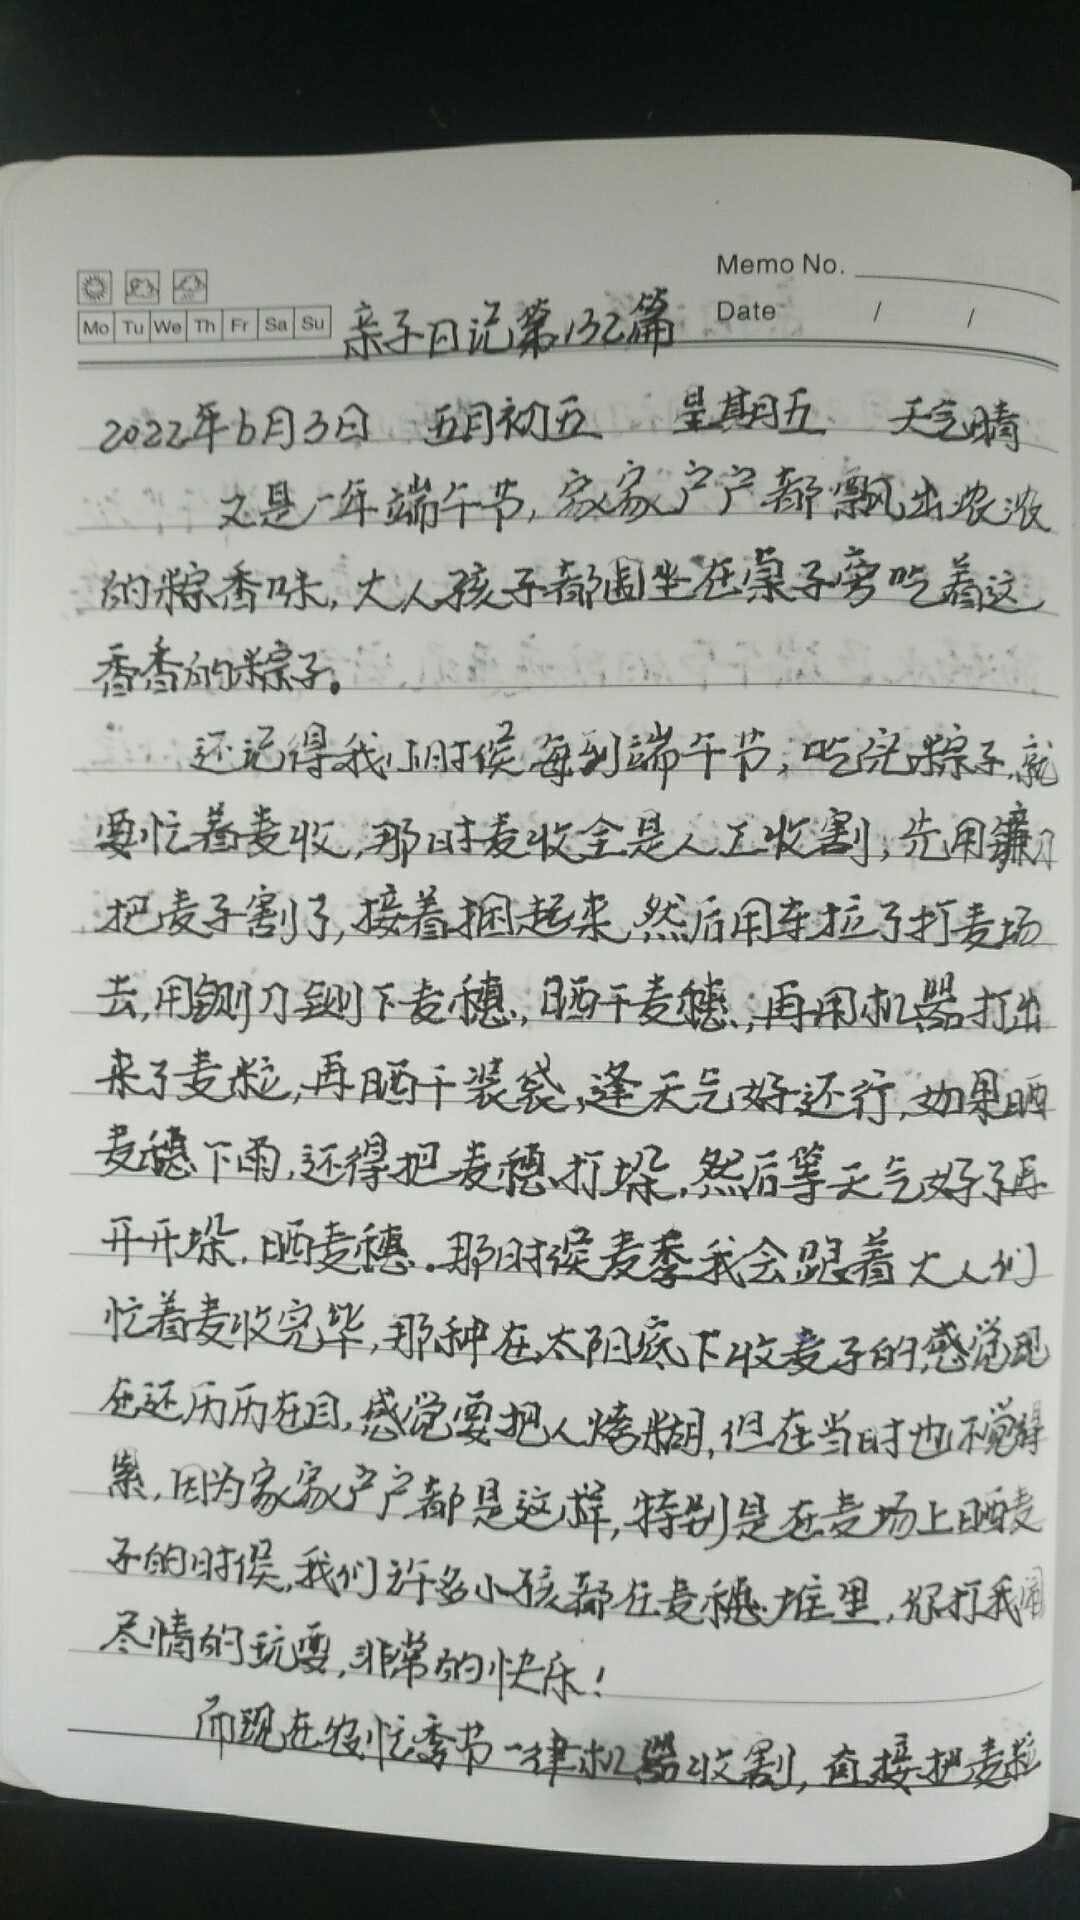 Memo No.
Mo Tu We Th Fr Sa Su
Date / /
亲子日记第132篇
2022年6月3日 五月初五 星期五 天气晴
又是一年端午节,家家户户都飘出浓浓
的粽香味,大人孩子都围坐在桌子旁吃着这
香香的粽子。
还记得我小时侯每到端午节,吃完粽子,就
要忙着麦收,那时麦收全是人工收割,先用镰刀
把麦子割了,接着捆起来,然后用车拉了打麦场
去,用铡刀铡下麦穗,晒干麦穗,再用机器打出
来了麦粒,再晒干装袋,逢天气好还行,如果晒
麦穗下雨,还得把麦穗打垛,然后等天气好了再
开开垛,晒麦穗.那时侯麦季我会跟着大人们
忙着麦收完毕,那种在太阳底下收麦子的感觉现
在还历历在目,感觉要把人烤糊,但在当时也不觉得
累,因为家家户户都是这样,特别是在麦场上晒麦
子的时侯,我们许多小孩都在麦穗堆里,你打我闹
尽情的玩耍,非常的快乐!
而现在农忙季节一律机器收割,直接把麦粒